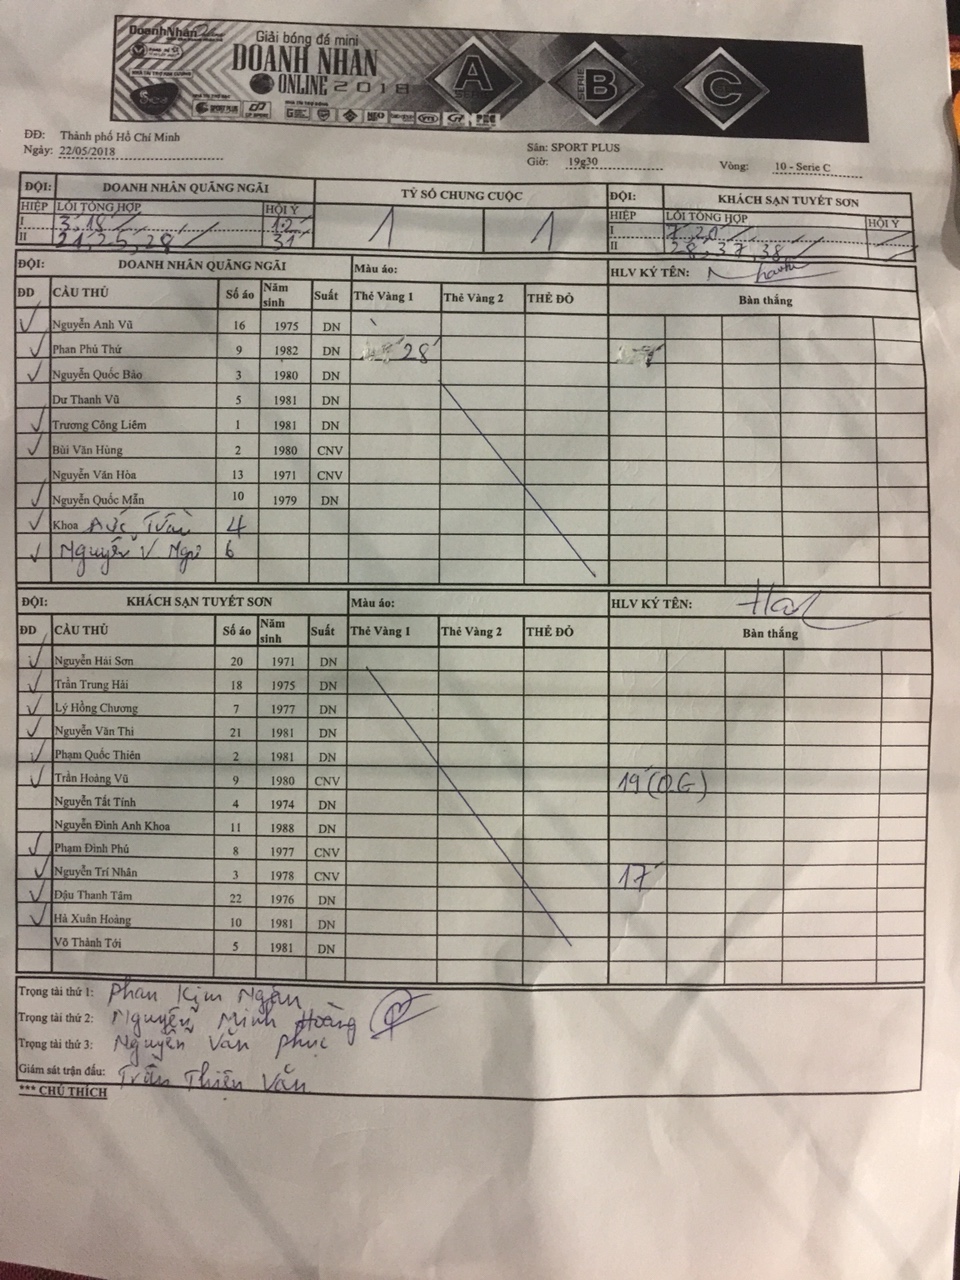 DoanhNhân
Giải bóng đá mini
DOANH NHÂN
ONLINE 2018
SERIE A
SERIE B
SERIE C
ĐĐ: Thành phố Hồ Chí Minh
Ngày: 22/05/2018
Sân: SPORT PLUS
Giờ: 19g30
Vòng: 10 - Serie C
ĐỘI: DOANH NHÂN QUẢNG NGÃI TỶ SỐ CHUNG CUỘC ĐỘI: KHÁCH SẠN TUYẾT SƠN
HIỆP LỖI TỔNG HỢP HỘI Ý 1 1 HIỆP LỖI TỔNG HỢP HỘI Ý
I 3, 18 12 I 7, 20
II 21, 25, 28 31 II 28, 37, 38
ĐỘI: DOANH NHÂN QUẢNG NGÃI Màu áo: HLV KÝ TÊN:
ĐD CẦU THỦ Số áo Năm sinh Suất Thẻ Vàng 1 Thẻ Vàng 2 THẺ ĐỎ Bàn thắng
Nguyễn Anh Vũ 16 1975 DN
Phan Phú Thứ 9 1982 DN 28
Nguyễn Quốc Bảo 3 1980 DN
Dư Thanh Vũ 5 1981 DN
Trương Công Liêm 1 1981 DN
Bùi Văn Hùng 2 1980 CNV
Nguyễn Văn Hòa 13 1971 CNV
Nguyễn Quốc Mẫn 10 1979 DN
Khoa 4
Nguyễn V 6
ĐỘI: KHÁCH SẠN TUYẾT SƠN Màu áo: HLV KÝ TÊN:
ĐD CẦU THỦ Số áo Năm sinh Suất Thẻ Vàng 1 Thẻ Vàng 2 THẺ ĐỎ Bàn thắng
Nguyễn Hải Sơn 20 1971 DN
Trần Trung Hải 18 1975 DN
Lý Hồng Chương 7 1977 DN
Nguyễn Văn Thi 21 1981 DN
Phạm Quốc Thiên 2 1981 DN
Trần Hoàng Vũ 9 1980 CNV 19' (O.G)
Nguyễn Tất Tính 4 1974 DN
Nguyễn Đình Anh Khoa 11 1988 DN
Phạm Đình Phú 8 1977 CNV
Nguyễn Trí Nhân 3 1978 CNV 17'
Đậu Thanh Tâm 22 1976 DN
Hà Xuân Hoàng 10 1981 DN
Võ Thành Tới 5 1981 DN
Trọng tài thứ 1: Phan Kim Ngân
Trọng tài thứ 2: Nguyễn Minh Hoàng
Trọng tài thứ 3: Nguyễn Văn Phúc
Giám sát trận đấu: Trần Thiện Văn
*** CHÚ THÍCH